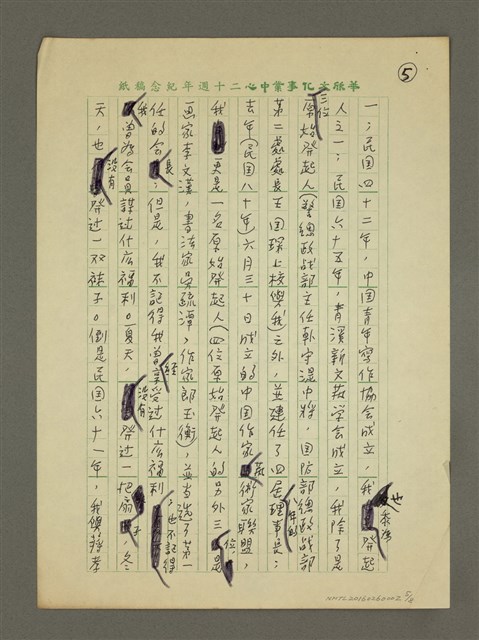 ⑤
華欣文化事業中心二十週年紀念稿紙
一；民國四十二年，中國青年寫作協會成立，我也忝為發起
人之一；民國六十五年，青溪新文藝學會成立，我除了是
三位原始發起人（警總政戰部主任韓守湜中將、國防部總政戰部
第二處處長王國琛上校與我）之外，並連任了四屆八年的理事長；
去年（民國八十年）六月三十日成立的中國作家藝術家聯盟，
我更是一名原始發起人（四位原始發起人的另外三位是
畫家李文漢，書法家吳疏潭，作家郎玉衡），並當選了第一
任的會長；但是，我不記得我曾經享受過什麼福利，也不記得
我曾為會員謀過什麼福利。夏天，沒有發過一把扇子，冬
天，也沒有發過一双袜子。倒是民國六十一年，我與蔣孝
NMTL20160260002 5/4